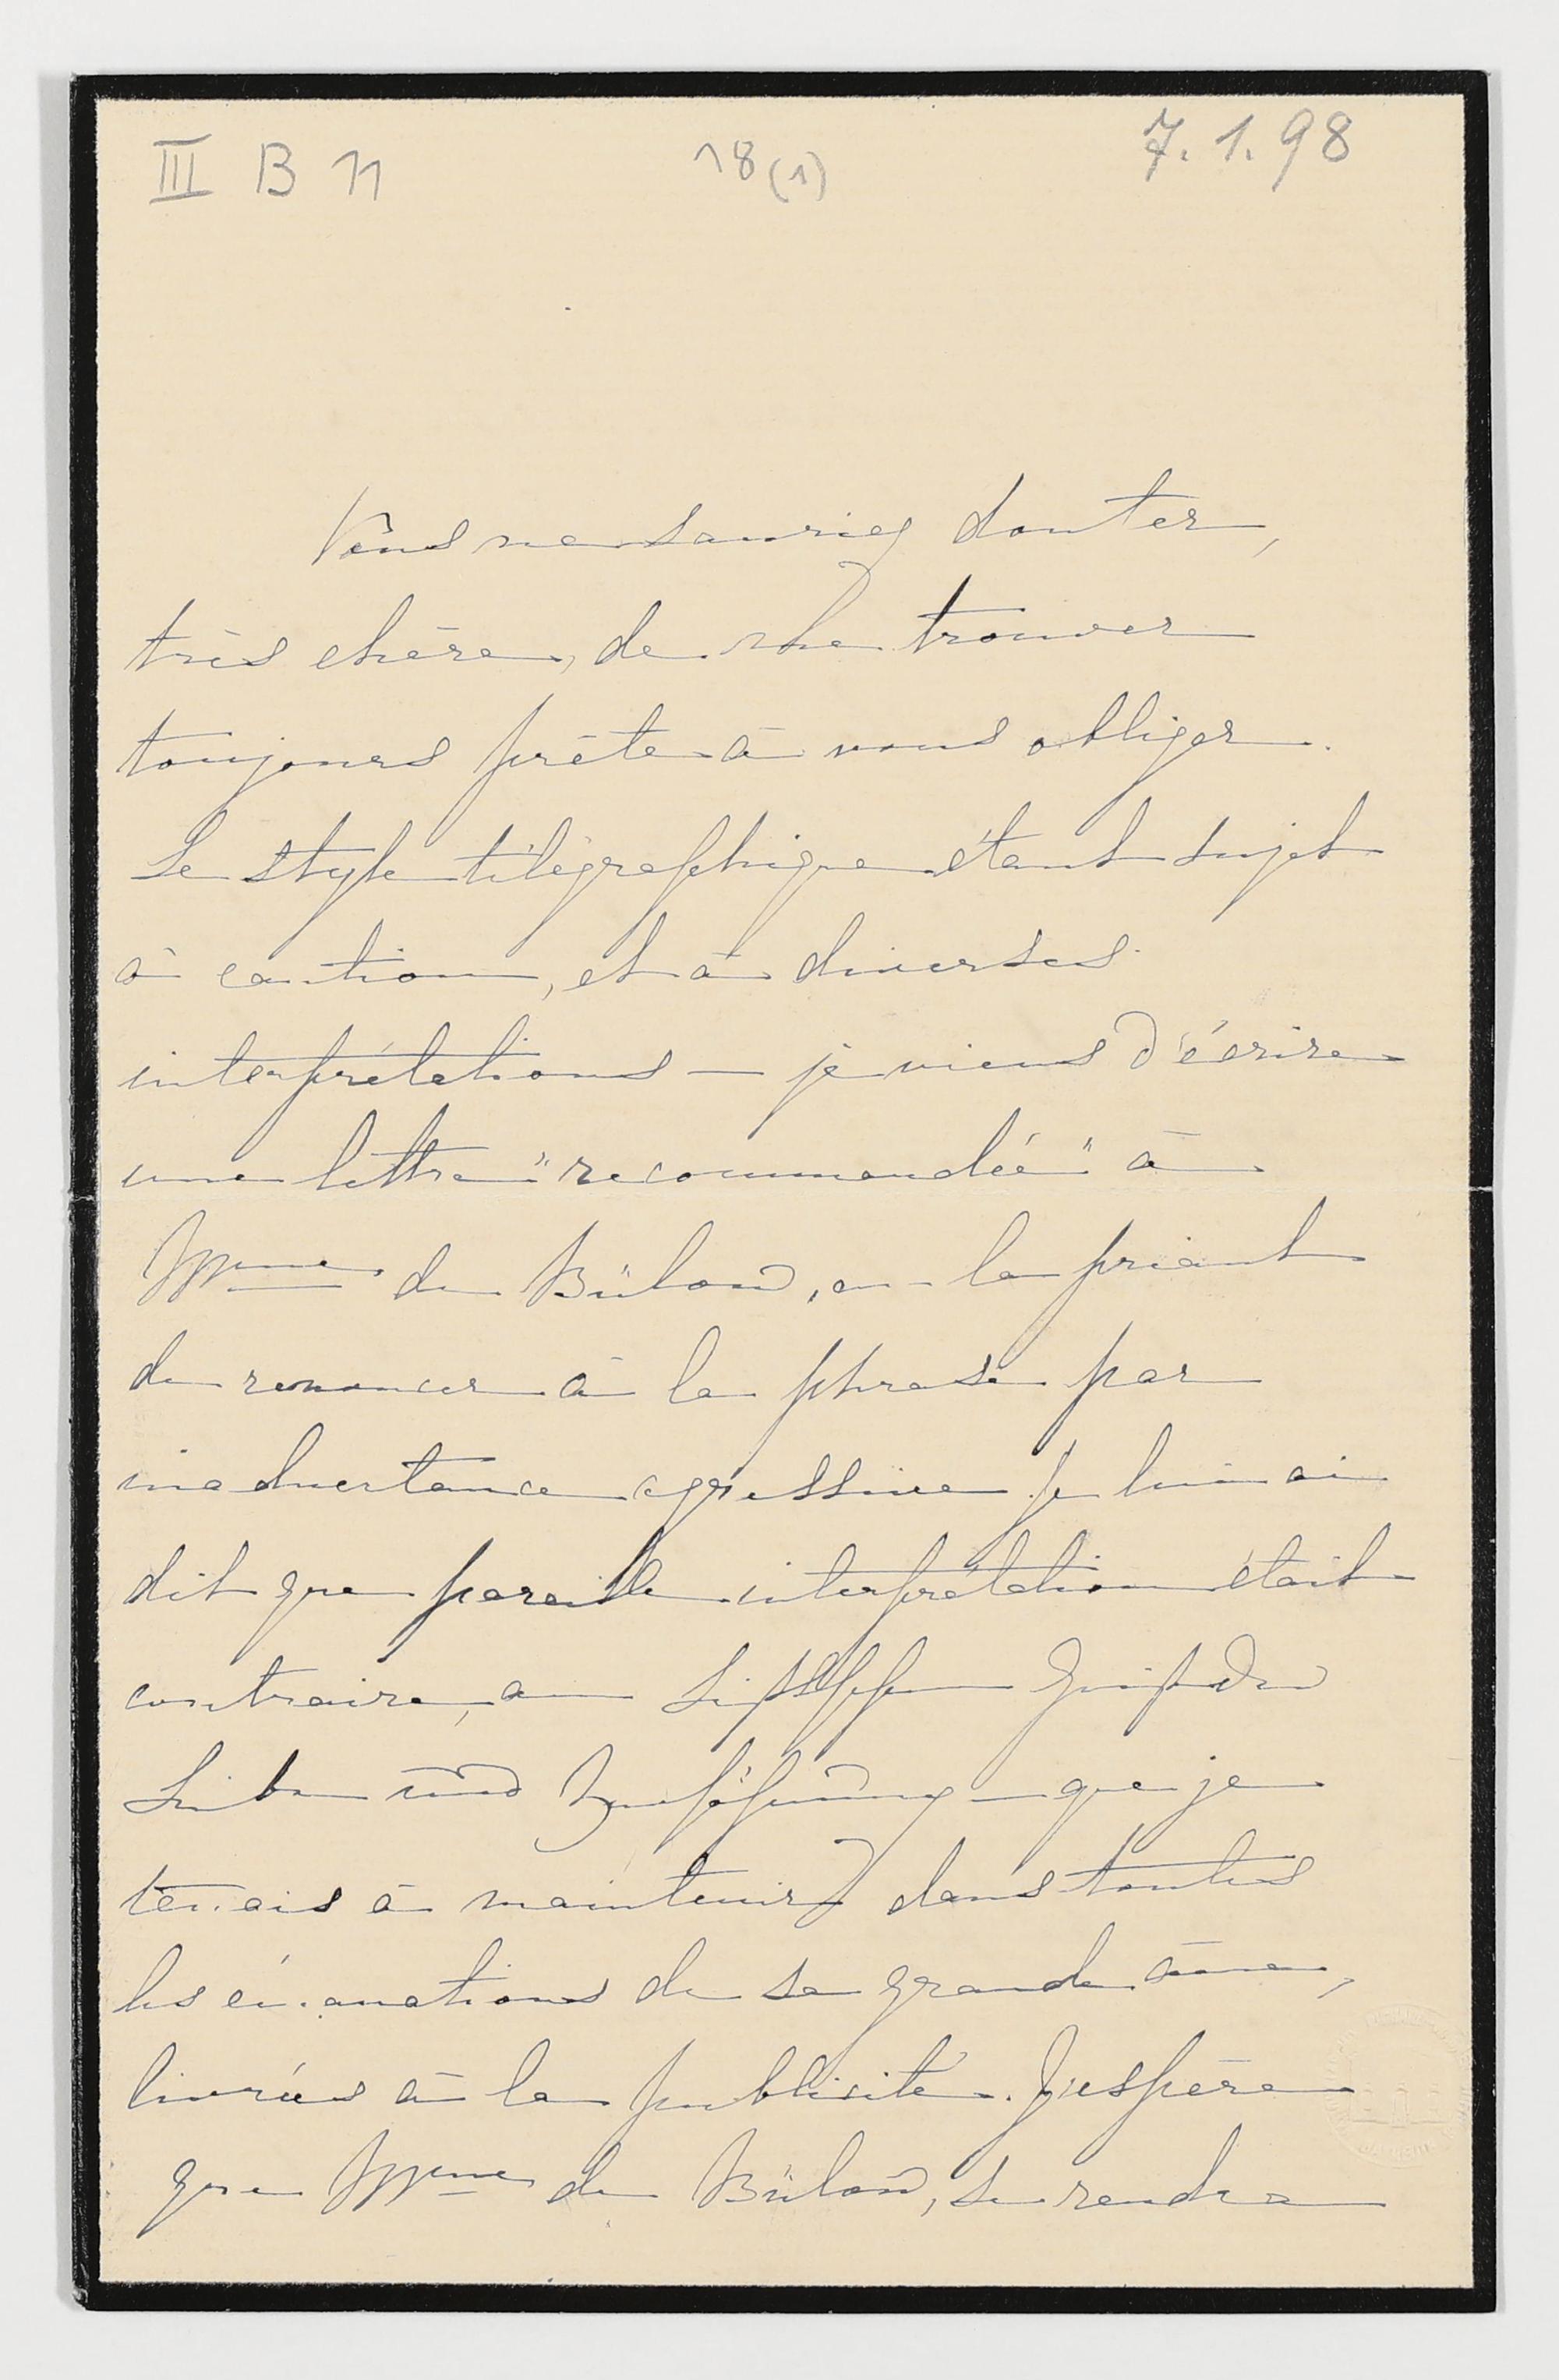 III B 11 18(1) 7.1.98
Vous ne sauriez douter,
très chère, de me trouver
toujours prête à vous obliger.
Le style télégraphique étant sujet
à caution, et à diverses
interprétations — je viens d'écrire
une lettre "recommandée" à
Mme de Bülow, en la priant
de renoncer à la phrase par
inadvertance agressive. Je lui ai
dit que pareille interprétation était
contraire, au Geist der
Liebe und Versöhnung — que je
tenais à maintenir dans toutes
les émanations de sa grande âme,
livrées à la publicité. J'espère
que Mme de Bülow, se rendra